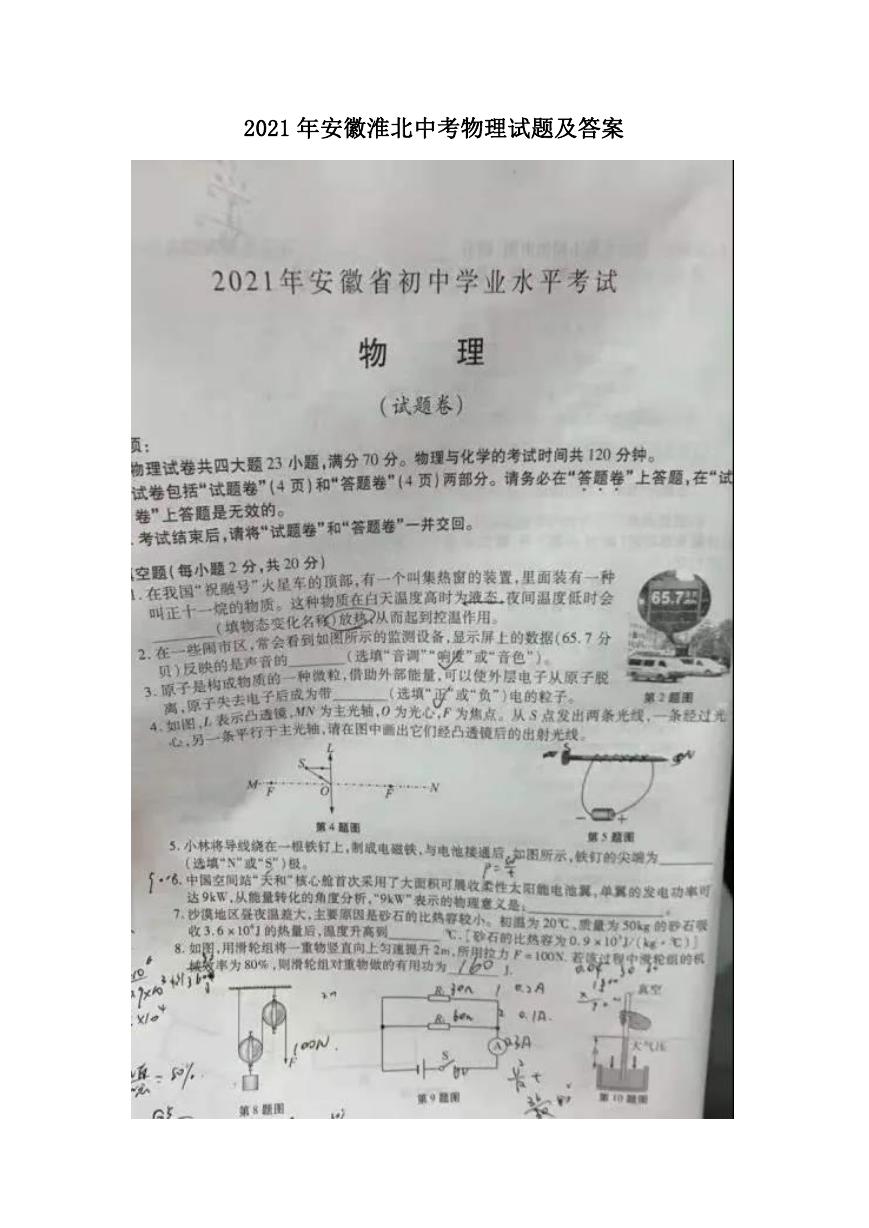 2021 年安徽淮北中考物理试题及答案
2021年安徽省初中学业水平考试
物 理
(试题卷)
页:
物理试卷共四大题 23 小题,满分 70 分。物理与化学的考试时间共 120 分钟。
试卷包括“试题卷”(4 页)和“答题卷”(4 页)两部分。请务必在“答题卷”上答题,在“试
卷”上答题是无效的。
考试结束后,请将“试题卷”和“答题卷”一并交回。
空题(每小题 2 分,共 20 分)
1. 在我国“祝融号”火星车的顶部,有一个叫集热窗的装置,里面装有一种
叫正十一烷的物质。这种物质在白天温度高时为液态,夜间温度低时会
(填物态变化名称)放热,从而起到控温作用。
2. 在一些闹市区,常会看到如图所示的监测设备,显示屏上的数据(65.7 分
贝)反映的是声音的______(选填“音调”“响度”或“音色”)。
3. 原子是构成物质的一种微粒,借助外部能量,可以使外层电子从原子脱
离,原子失去电子后成为带______(选填“正”或“负”)电的粒子。
65.7
第 2 题图
4. 如图,L 表示凸透镜,MN 为主光轴,O 为光心,F 为焦点。从 S 点发出两条光线,一条经过光
心,另一条平行于主光轴,请在图中画出它们经凸透镜后的出射光线。
L
S
M F O F N
S N
- +
第 4 题图
第 5 题图
5. 小林将导线绕在一根铁钉上,制成电磁铁,与电池接通后,如图所示,铁钉的尖端为______
(选填“N”或“S”)极。
6. 中国空间站“天和”核心舱首次采用了大面积可展收柔性太阳能电池翼,单翼的发电功率可
达 9kW,从能量转化的角度分析,“9kW”表示的物理意义是:______。
7. 沙漠地区昼夜温差大,主要原因是砂石的比热容较小。初温为 20℃,质量为 50kg 的砂石吸
收 3.6×10⁵J 的热量后,温度升高到______℃。[砂石的比热容为 0.9×10³J/(kg·℃)]
8. 如图,用滑轮组将一重物竖直向上匀速提升 2m,所用拉力 F=100N。若该过程中滑轮组的机
械效率为 80%,则滑轮组对重物做的有用功为 160 J.
R₁ 30Ω 0.2A
R₂ 60Ω 0.1A
A 0.3A
S
6V
100N
F
真空
大气压
h
= 80%
第 8 题图
第 9 题图
第 10 题图